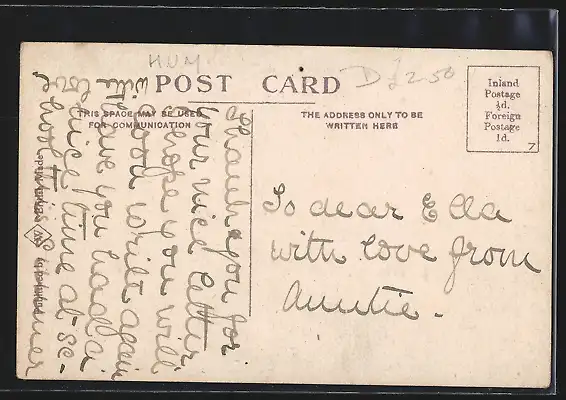 HUM
POST CARD
D £2.50
THIS SPACE MAY BE USED
FOR COMMUNICATION
THE ADDRESS ONLY TO BE
WRITTEN HERE
Inland
Postage
½d.
Foreign
Postage
1d.
7
Thank you for
your nice letter
I hope you will
soon write again
Have you had a
nice time at sc-
hool this summer
with love
To dear Ella
with love from
Auntie.